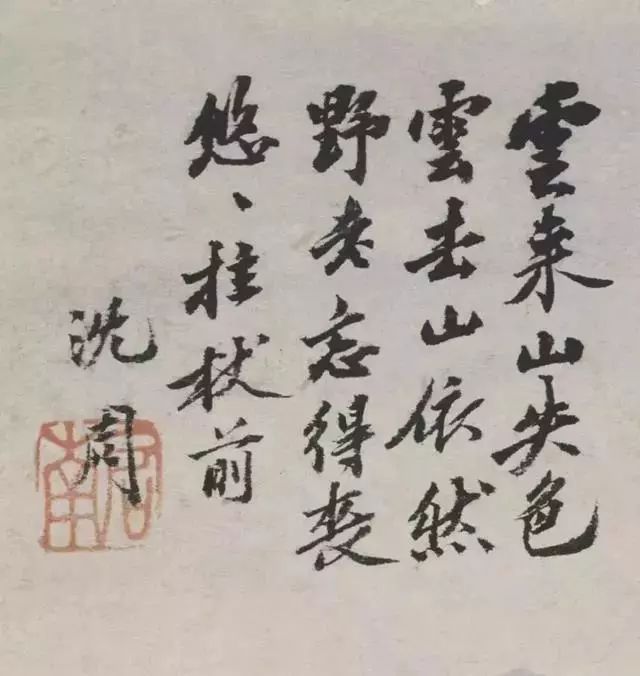 雲来山失色
雲去山依然
野老忘得喪
悠〻拄杖前
沈周
啓南